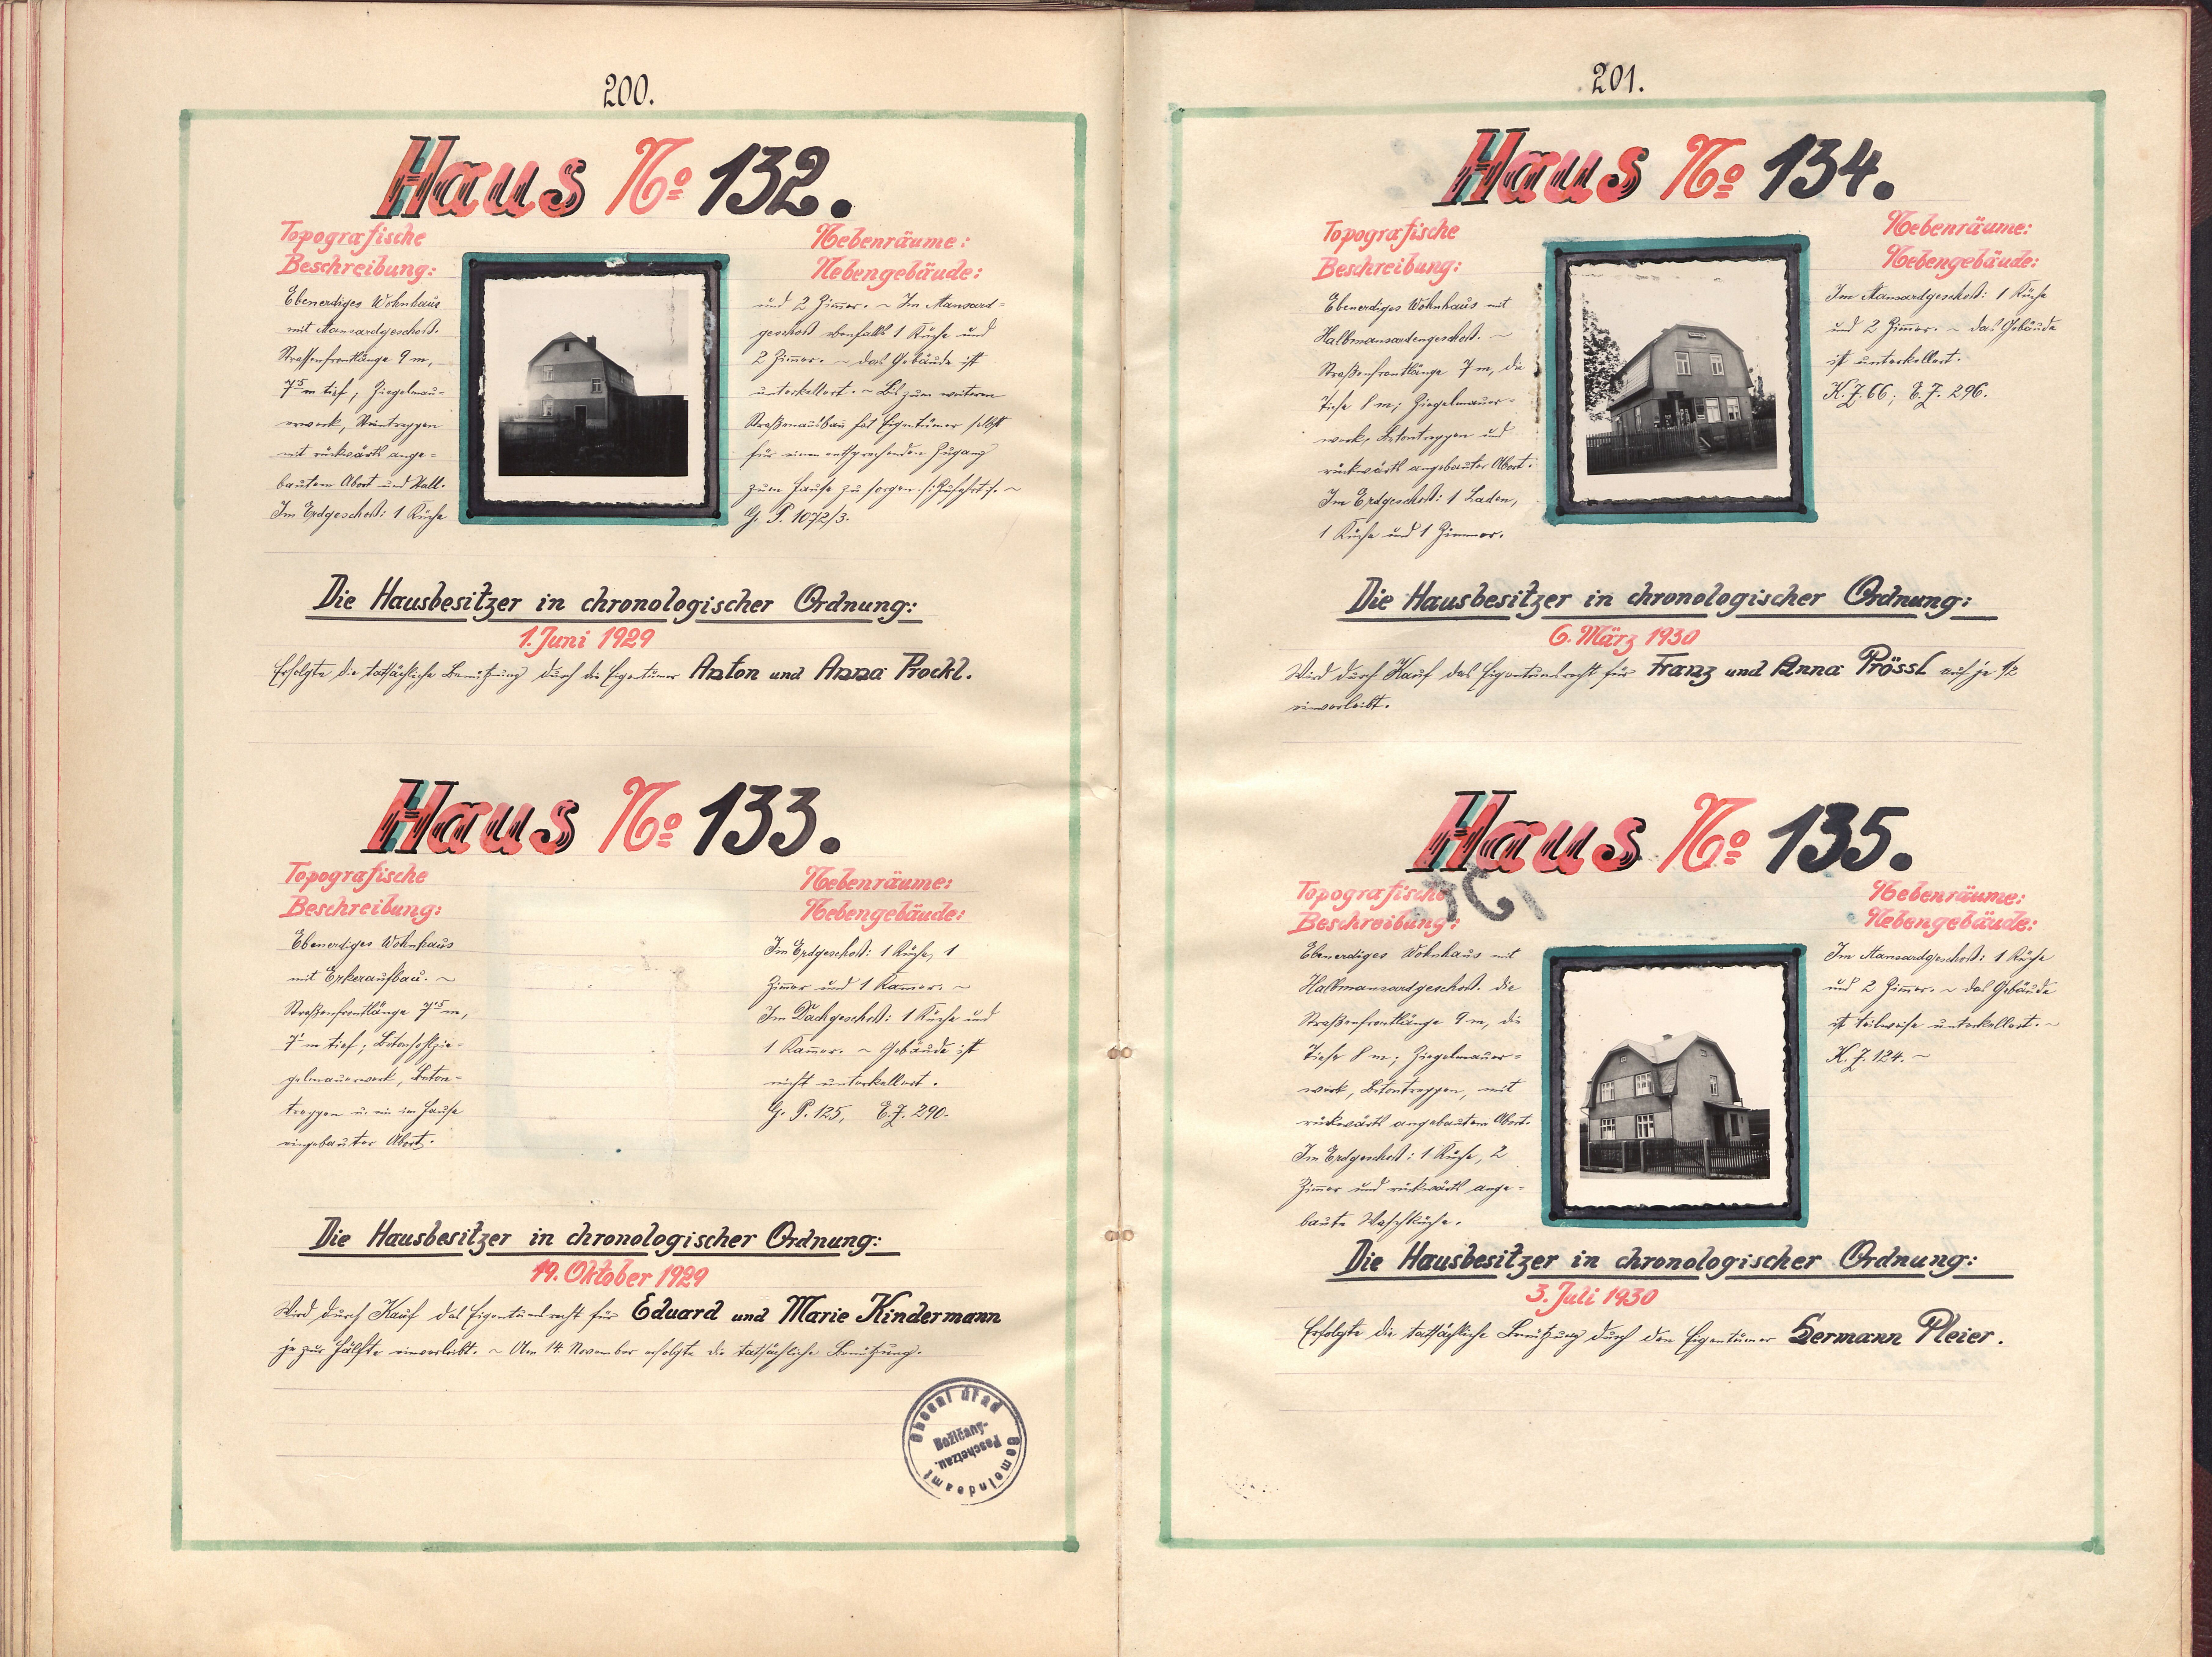 200.
Haus No 132.
Topografische
Beschreibung:
Ebenerdiges Wohnhaus
mit Mansardgeschoß.
Strassenfrontlänge 9 m,
7⁵ m tief, Ziegelmau-
erwerk, Steintreppen
mit rückwärts ange-
bautem Abort und Stall.
Im Erdgeschoß: 1 Küche
Nebenräume:
Nebengebäude:
und 2 Zimmer. ~ Im Mansard-
geschoß ebenfalls 1 Küche und
2 Zimmer. ~ Das Gebäude ist
unterkellert. ~ Bis zum weiteren
Straßenausbau hat Eigentümer selbst
für einen entsprechenden Zugang
zum Hause zu sorgen /: Zufahrt :/. ~
G. P. 1072/3.
Die Hausbesitzer in chronologischer Ordnung:
1. Juni 1929
Erfolgte die tatsächliche Benützung durch die Eigentümer Anton und Anna Prockl.
Haus No 133.
Topografische
Beschreibung:
Ebenerdiges Wohnhaus
mit Erkeraufbau. ~
Straßenfrontlänge 7⁵ m,
7 m tief; Betonhohlzie-
gelmauerwerk, Beton-
treppen u. ein im Hause
eingebauter Abort.
Nebenräume:
Nebengebäude:
Im Erdgeschoß: 1 Küche, 1
Zimmer und 1 Kammer. ~
Im Dachgeschoß: 1 Küche und
1 Kammer. ~ Gebäude ist
nicht unterkellert.
G. P. 125, E.Z. 290.
Die Hausbesitzer in chronologischer Ordnung:
19. Oktober 1929
Wird durch Kauf das Eigentumsrecht für Eduard und Marie Kindermann
je zur Hälfte einverleibt. ~ Am 14. November erfolgte die tatsächliche Benützung.
Obecní úřad
Božičany-
Poschetzau.
Gemeindeamt
201.
Haus No 134.
Topografische
Beschreibung:
Ebenerdiges Wohnhaus mit
Halbmansardengeschoß. ~
Straßenfrontlänge 7 m, die
Tiefe 8 m; Ziegelmauer-
werk, Betontreppen und
rückwärts angebauter Abort.
Im Erdgeschoß: 1 Laden,
1 Küche und 1 Zimmer.
Nebenräume:
Nebengebäude:
Im Mansardgeschoß: 1 Küche
und 2 Zimmer. ~ Das Gebäude
ist unterkellert.
K.Z. 66; E.Z. 296.
Die Hausbesitzer in chronologischer Ordnung:
6. März 1930
Wird durch Kauf das Eigentumsrecht für Franz und Anna Prössl auf je 1/2
einverleibt.
Haus No 135.
Topografische
Beschreibung:
Ebenerdiges Wohnhaus mit
Halbmansardgeschoß. Die
Straßenfrontlänge 9 m, die
Tiefe 8 m; Ziegelmauer-
werk, Betontreppen, mit
rückwärts angebautem Abort.
Im Erdgeschoß: 1 Küche, 2
Zimmer und rückwärts ange-
baute Waschküche.
Nebenräume:
Nebengebäude:
Im Mansardgeschoß: 1 Küche
und 2 Zimmer. ~ Das Gebäude
ist teilweise unterkellert. ~
K.Z. 124. ~
Die Hausbesitzer in chronologischer Ordnung:
3. Juli 1930
Erfolgte die tatsächliche Benützung durch den Eigentümer Hermann Pleier.